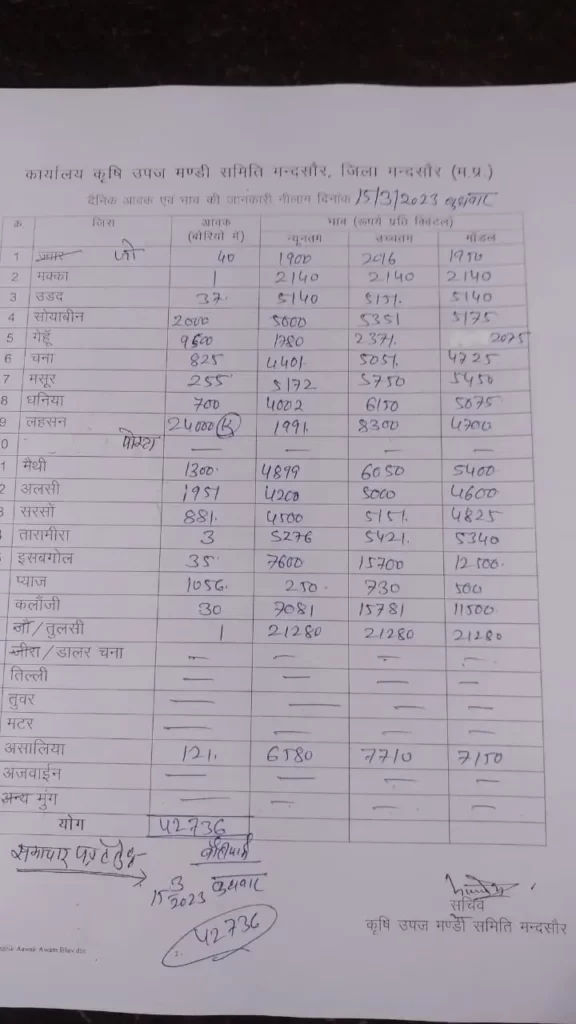 कार्यालय कृषि उपज मण्डी समिति मन्दसौर, जिला मन्दसौर (म.प्र.)
दैनिक आवक एवं भाव की जानकारी नीलाम दिनांक 15/3/2023 बुधवार
क जिंस आवक (बोरियो में) भाव (रूपये प्रति क्विंटल)
न्यूनतम उच्चतम मॉडल
1 जौ 40 1900 2016 1950
2 मक्का 1 2140 2140 2140
3 उडद 37 5140 5151 5140
4 सोयाबीन 2000 5000 5351 5175
5 गेहूँ 9600 1780 2371 2075
6 चना 825 4401 5051 4725
7 मसूर 255 5172 5750 5450
8 धनिया 700 4002 6150 5075
9 लहसन 24000 (K) 1991 8300 4700
0 पोस्ता — — — —
1 मैथी 1300 4899 6050 5400
2 अलसी 1951 4200 5000 4600
3 सरसो 881 4500 5151 4825
तारामीरा 3 5276 5421 5340
इसबगोल 35 7600 15700 12500
प्याज 1056 250 730 500
कलौंजी 30 7081 15781 11500
जौ/तुलसी 1 21280 21280 21280
जीरा/डालर चना — — — —
तिल्ली — — — —
तुवर — — — —
मटर — — — —
असालिया 121 6580 7710 7150
अजवाईन — — — —
अन्य मुंग — — — —
योग 42736
समाचार पत्र हेतु
15/3/2023 बुधवार
42736
सचिव
कृषि उपज मण्डी समिति मन्दसौर
Aawak Awam Bhav.doc